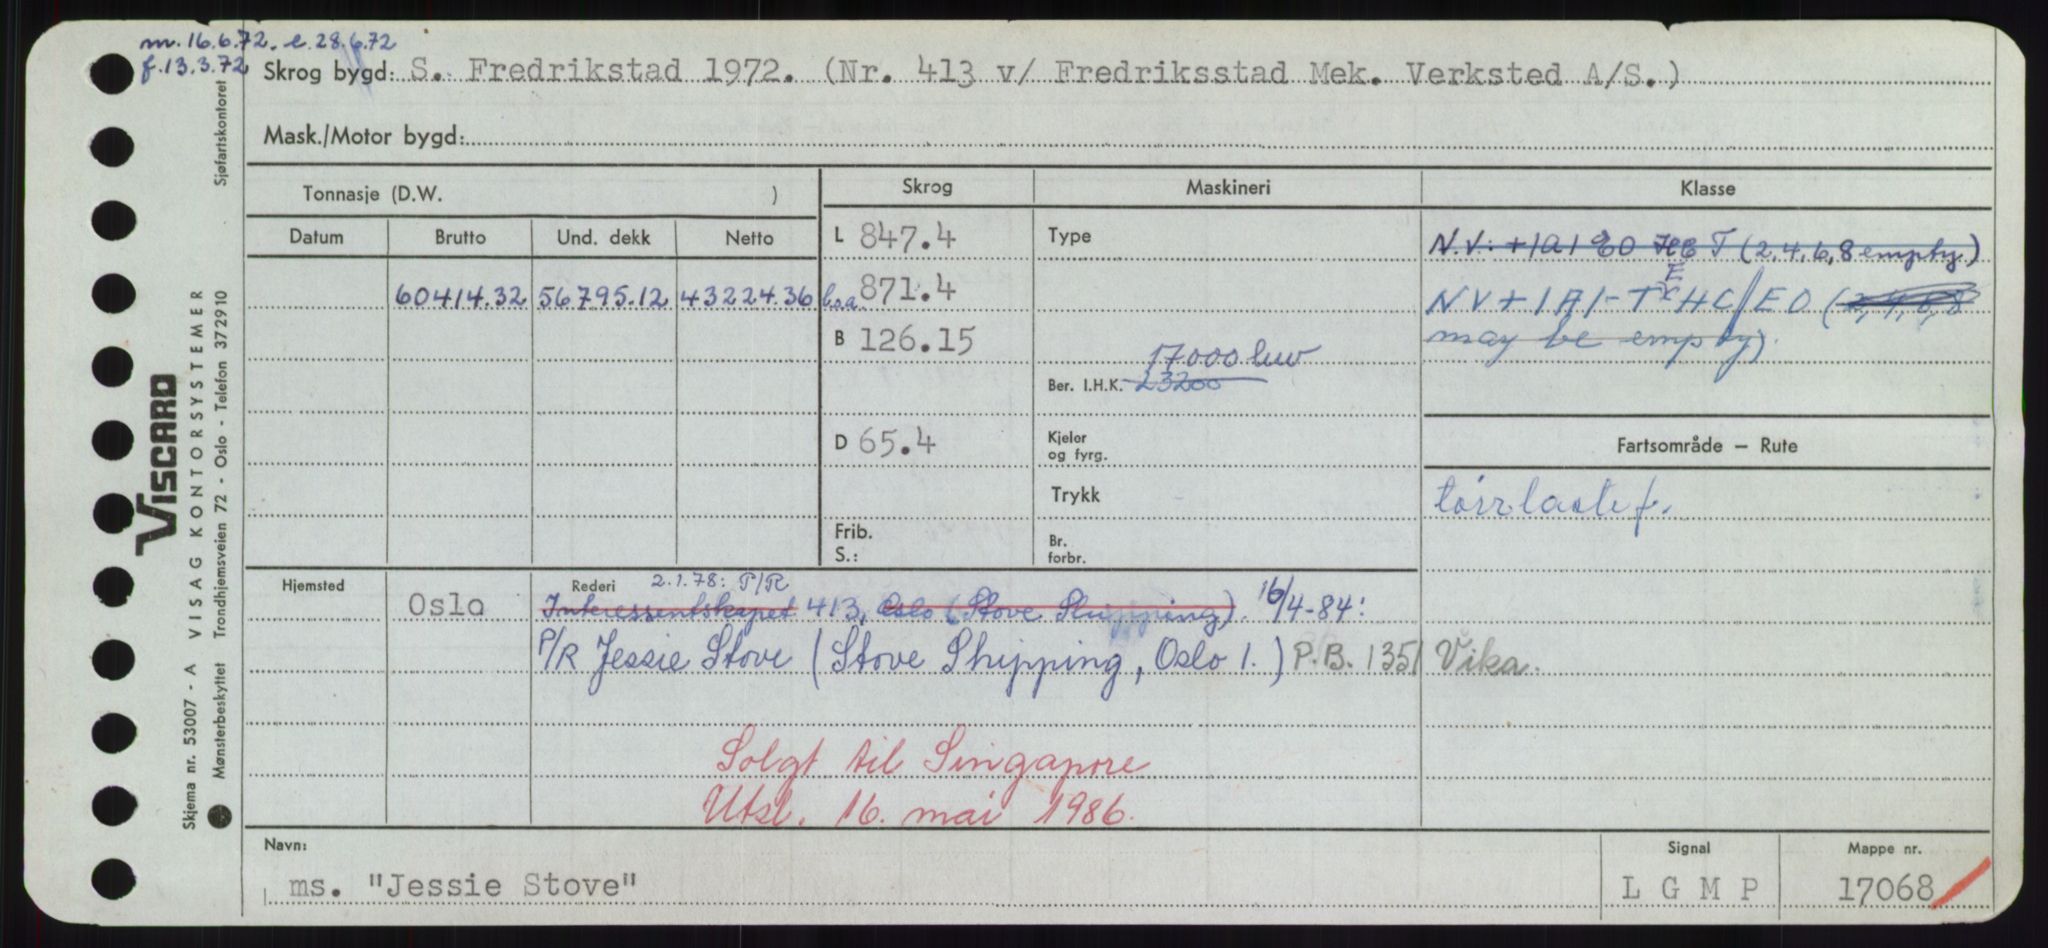 m. 16.6.72. e. 28.6.72
f. 13.3.72
Skrog bygd: S. Fredrikstad 1972. (Nr. 413 v/ Fredriksstad Mek. Verksted A/S.)
Mask./Motor bygd:
Tonnasje (D.W. )
Skrog
Maskineri
Klasse
Datum
Brutto
Und. dekk
Netto
L 847.4
Type
N.V. +1A1 EO HC T (2,4,6,8 empty)
60414.32 56795.12 43224.36 b.o.a. 871.4
NV+1A1-T Ex HC/EO (2,4,6,8
may be empty)
B 126.15
17000 bhk
Ber. I.H.K. 23200
D 65.4
Kjeler
og fyrg.
Fartsområde — Rute
Trykk
tørrlastef.
Frib.
S.:
Br.
forbr.
Hjemsted
Oslo
Rederi 2.1.78: P/R
Interessentskapet 413, Oslo (Stove Shipping). 16/4-84:
P/R Jessie Stove (Stove Shipping, Oslo 1.) P.B. 1351 Vika.
Solgt til Singapore
Utsl. 16. mai 1986.
Navn:
ms. "Jessie Stove"
Signal
L G M P
Mappe nr.
17068
Sjøfartskontoret
VISCARD
VISAG KONTORSYSTEMER
Trondhjemsveien 72 - Oslo - Telefon 372910
Skjema nr. 53007 - A
Mønsterbeskyttet